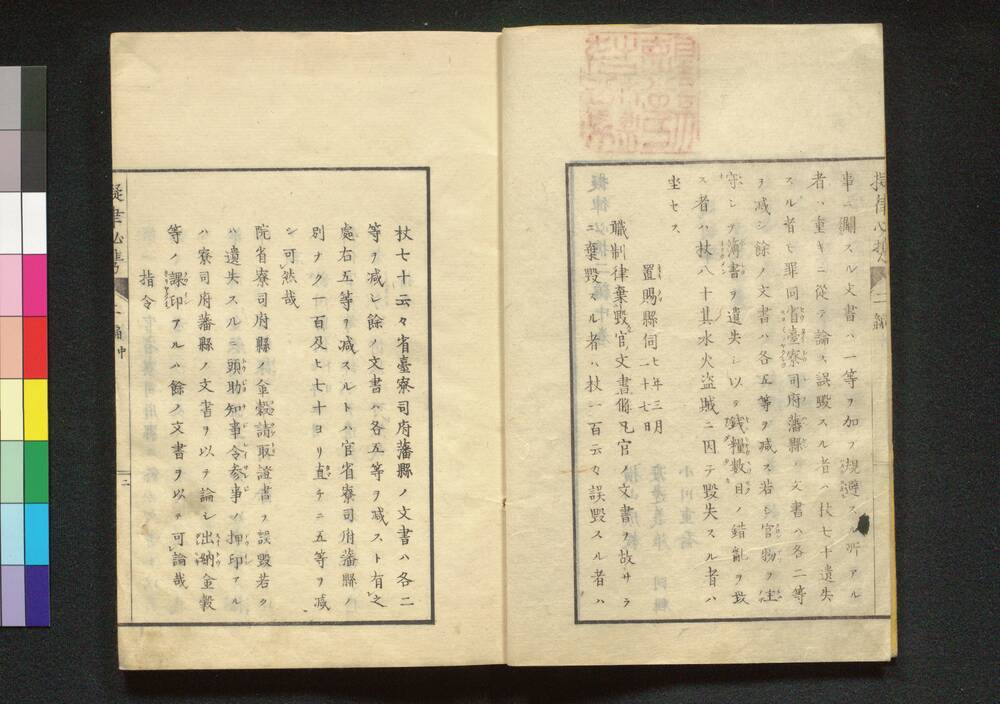 事ニ關スル文書ハ一等ヲ加フ規避スル所アル
者ハ重キニ從テ論ス誤毀スル者ハ杖七十遺失
スル者モ罪同省臺寮司府藩縣ノ文書ハ各二等
ヲ減シ餘ノ文書ハ各五等ヲ減ス若シ官物ヲ主
守シテ簿書ヲ遺失シ以テ錢糧數目ノ錯亂ヲ致
ス者ハ杖八十其水火盗賊ニ因テ毀失スル者ハ
坐セス
置賜縣伺 七年三月二十七日
職制律棄毀官文書條凡官ノ文書ヲ故サラ
ニ棄毀スル者ハ杖一百云々誤毀スル者ハ
杖七十云々省臺寮司府藩縣ノ文書ハ各二
等ヲ減シ餘ノ文書ハ各五等ヲ減スト有之
處右五等ヲ減スルトハ官省寮司府藩縣ノ
別ヲク一百及ヒ七十ヨリ直チニ五等ヲ減
シ可然哉
院省寮司府縣ノ金穀請取證書ヲ誤毀若ク
ハ遺失スルニ頭助知事令參事ノ押印アル
ハ寮司府藩縣ノ文書ヲ以テ論シ出納金穀
等ノ課印アルハ餘ノ文書ヲ以テ可論哉
指令
擬律必携 二編中
二